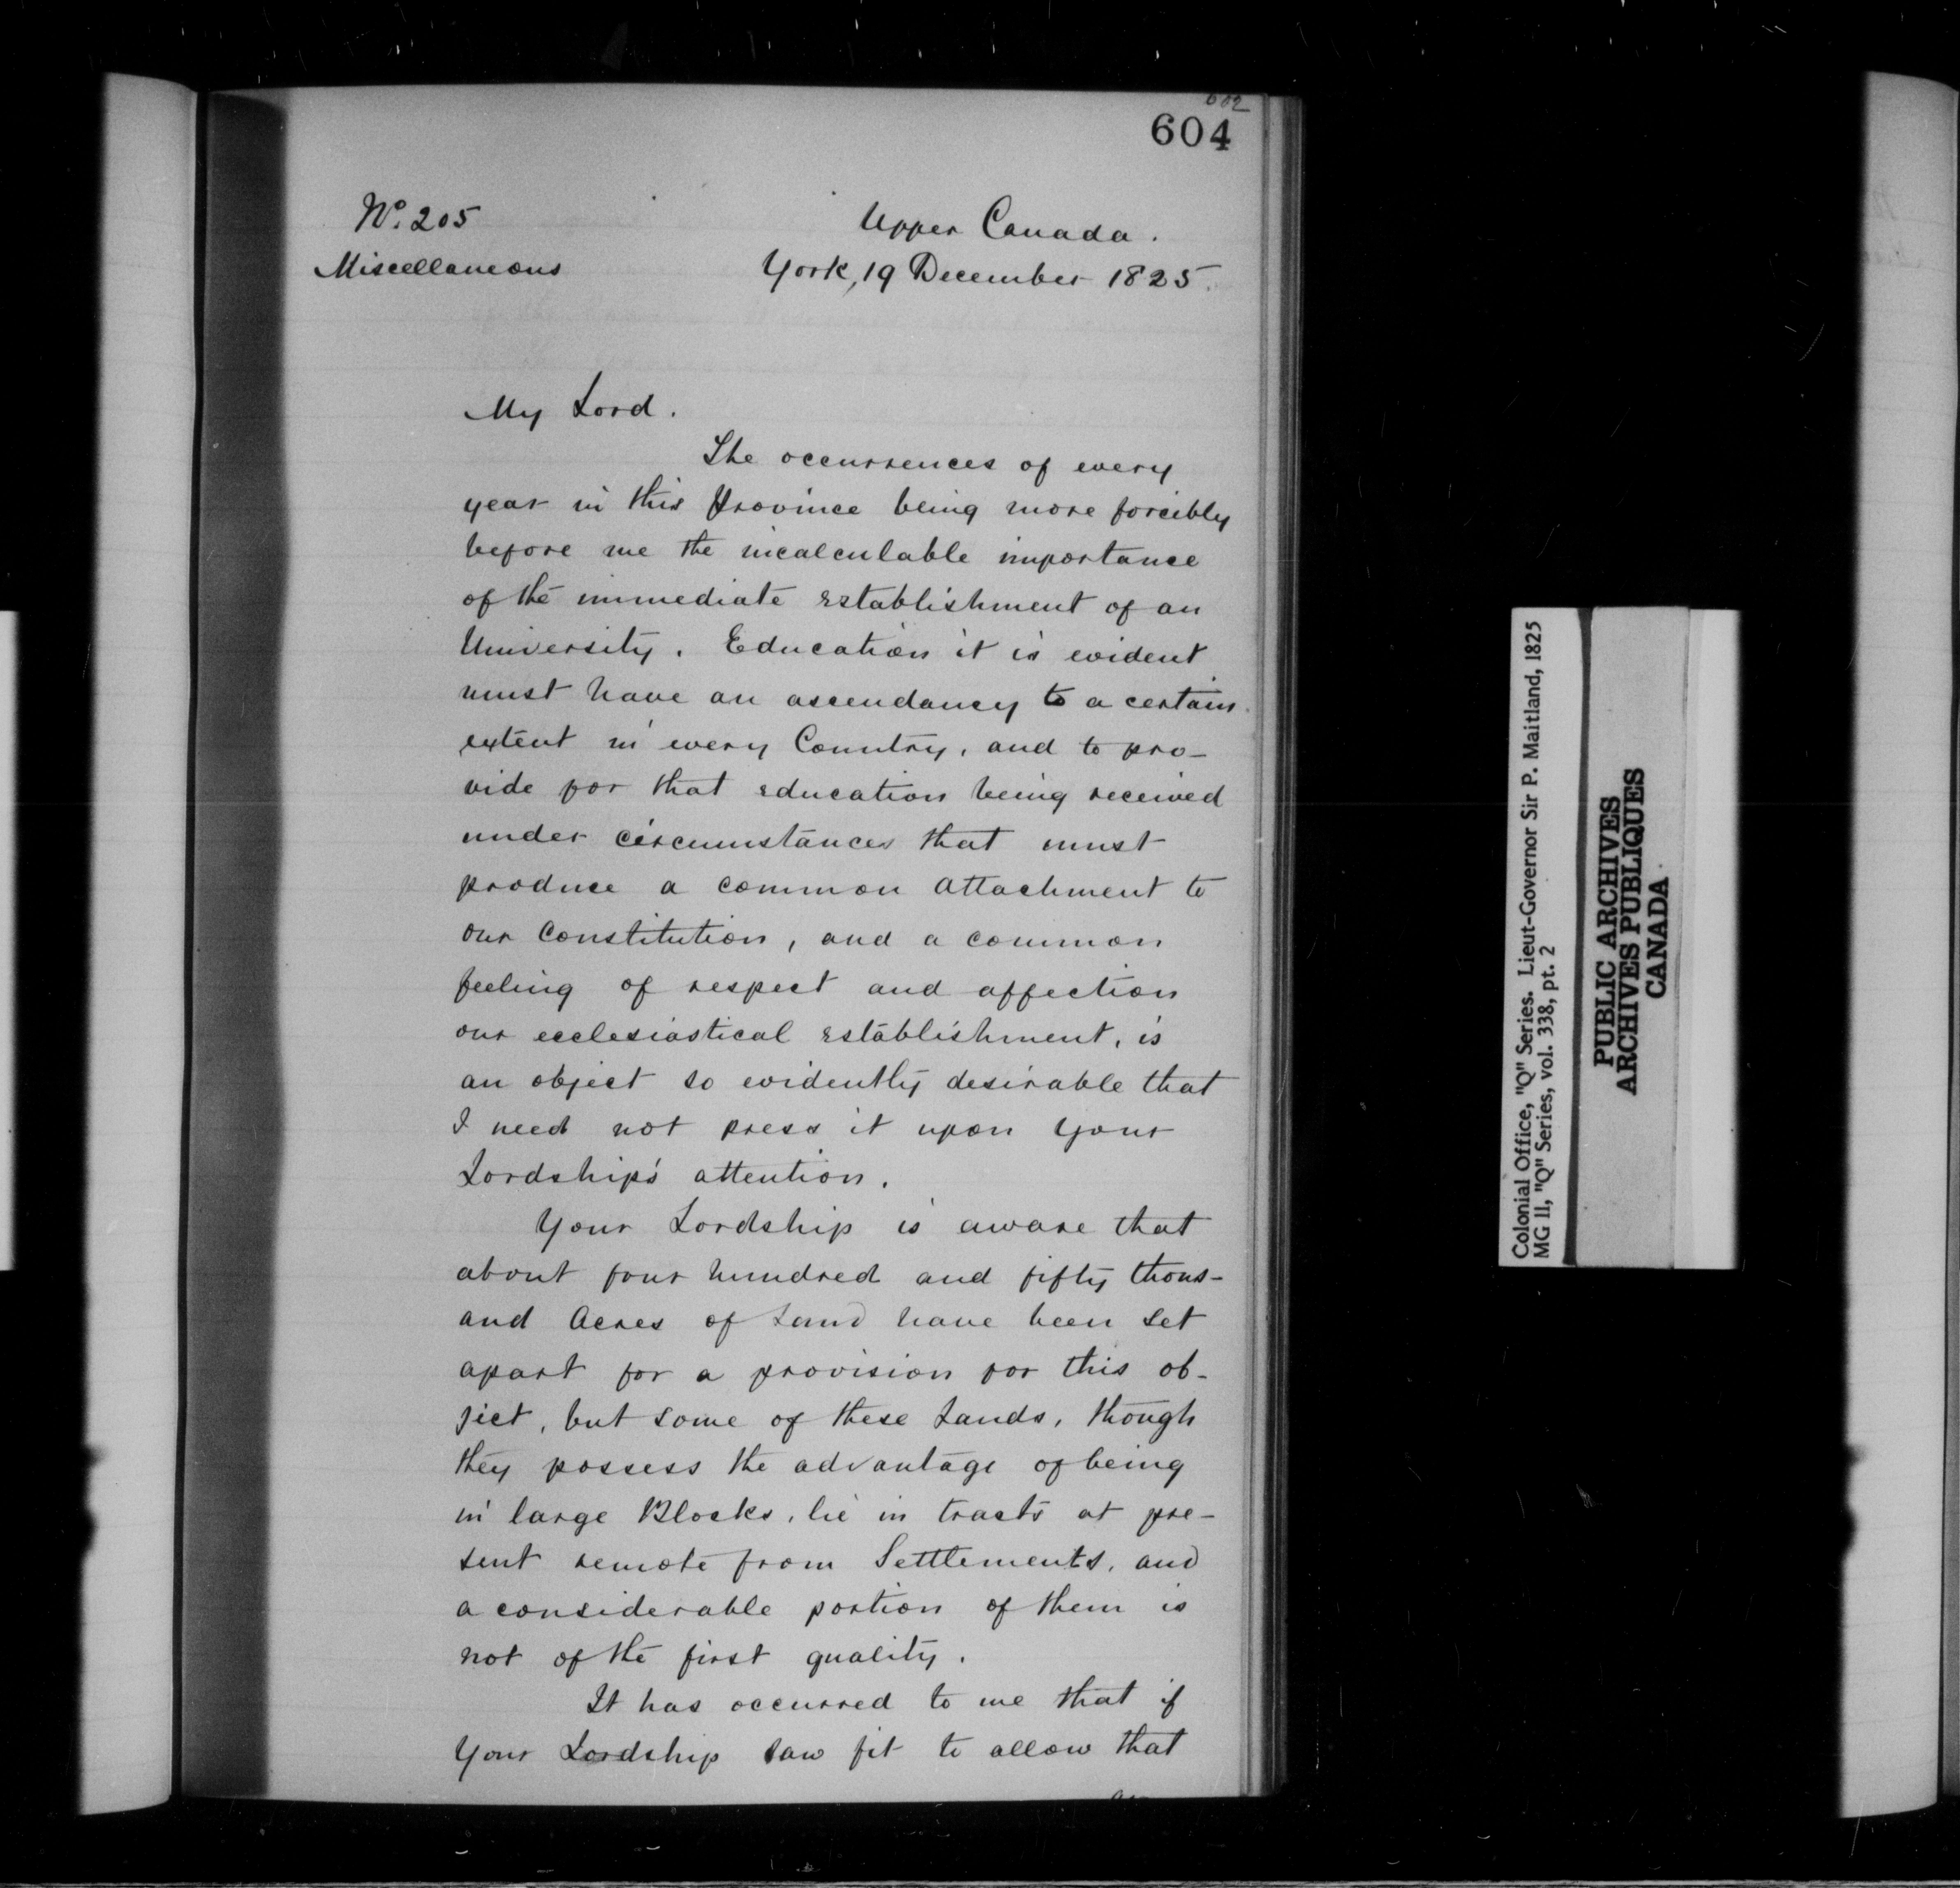 602
604
No. 205
Upper Canada.
Miscellaneous
York, 19 December 1825.
My Lord.
The occurrences of every
year in this Province being more forcibly
before me the incalculable importance
of the immediate establishment of an
University. Education it is evident
must have an ascendancy to a certain
extent in every Country, and to pro-
vide for that education being received
under circumstances that must
produce a common attachment to
our Constitution, and a common
feeling of respect and affection
our ecclesiastical establishment, is
an object so evidently desirable that
I need not press it upon Your
Lordship's attention.
Your Lordship is aware that
about four hundred and fifty thous-
and Acres of Land have been set
apart for a provision for this ob-
ject, but some of these Lands, though
they possess the advantage of being
in large Blocks, lie in tracts at pre-
sent remote from Settlements, and
a considerable portion of them is
not of the first quality.
It has occurred to me that if
Your Lordship saw fit to allow that
Colonial Office, "Q" Series. Lieut-Governor Sir P. Maitland, 1825
MG 11, "Q" Series, vol. 338, pt. 2
PUBLIC ARCHIVES
ARCHIVES PUBLIQUES
CANADA